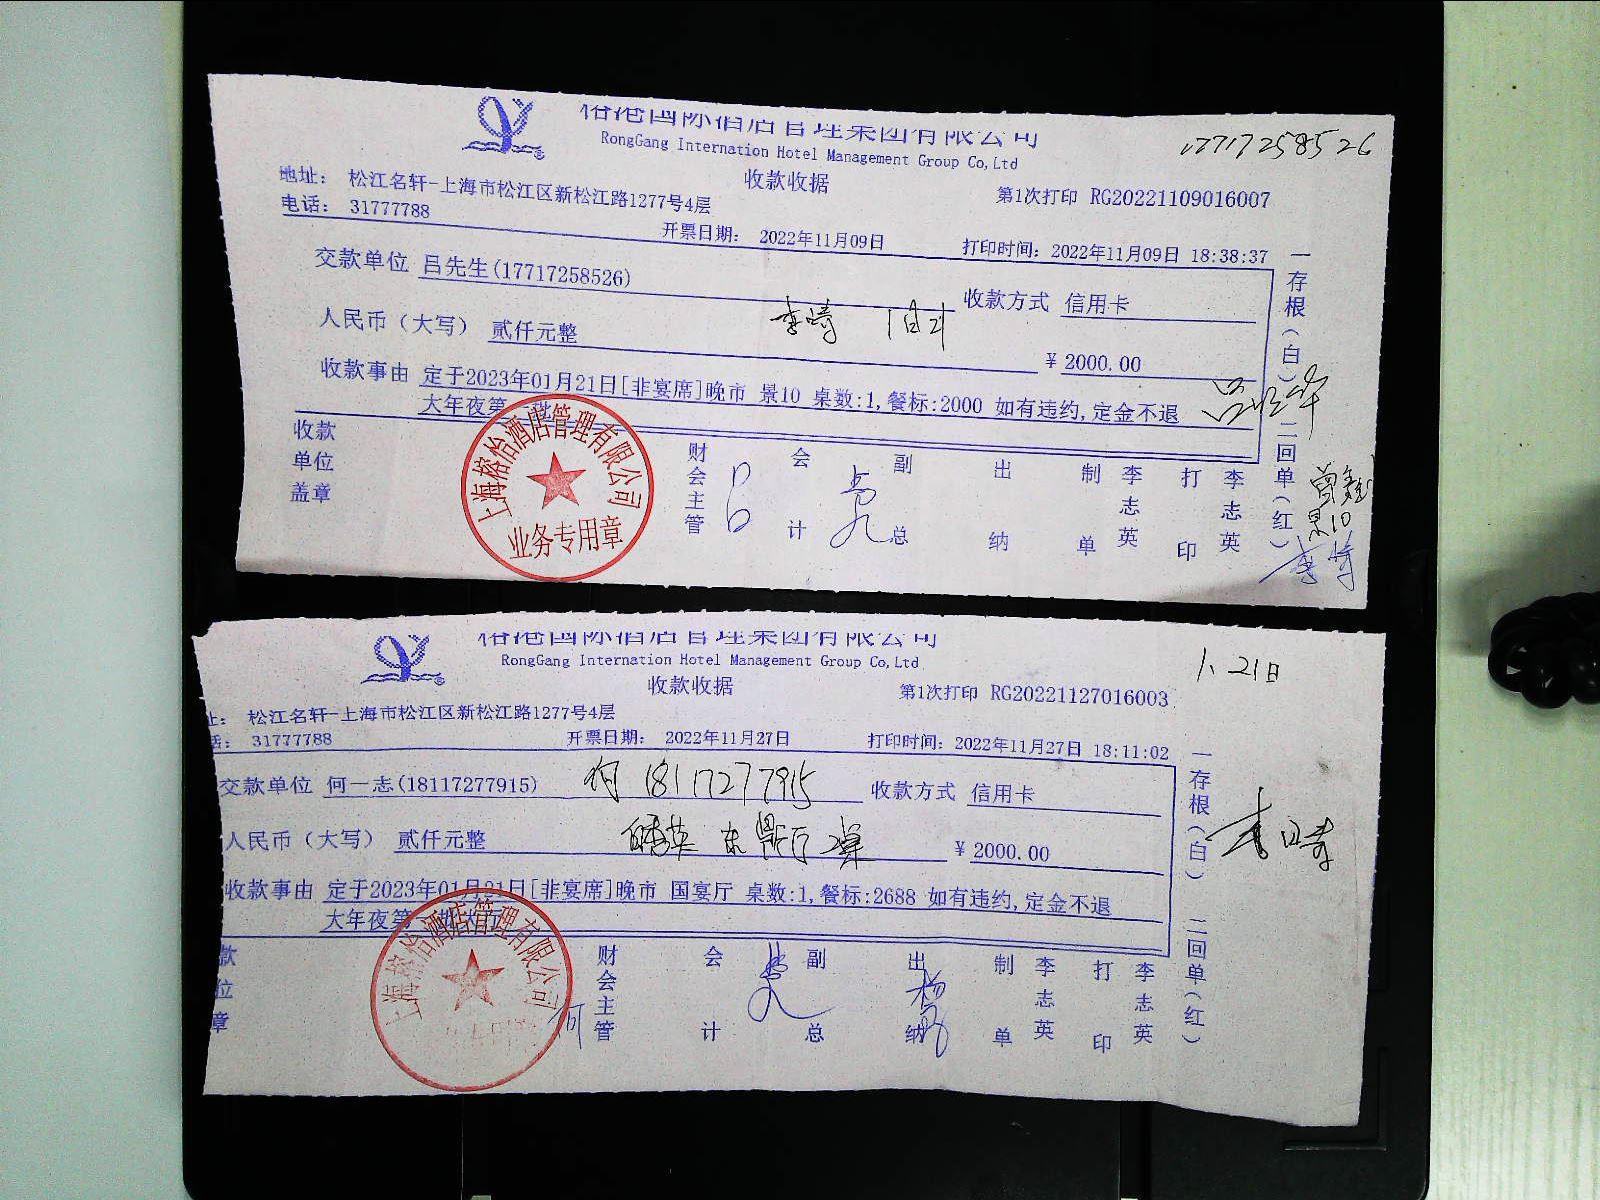 榕港国际酒店管理集团有限公司
RongGang Internation Hotel Management Group Co,Ltd
17717258526
收款收据
第1次打印 RG20221109016007
地址： 松江名轩-上海市松江区新松江路1277号4层
电话： 31777788
开票日期： 2022年11月09日
打印时间：2022年11月09日 18:38:37
交款单位 吕先生(17717258526)
收款方式 信用卡
人民币（大写） 贰仟元整
李琦
¥2000.00
收款事由 定于2023年01月21日[非宴席]晚市 景10 桌数:1,餐标:2000 如有违约,定金不退
大年夜第一批
一存根(白) 二回单(红)
收款单位盖章
上海榕怡酒店管理有限公司
业务专用章
财会主管
会计
副总
出纳
制单 李志英
打印 李志英
景10
李琦
榕港国际酒店管理集团有限公司
RongGang Internation Hotel Management Group Co,Ltd
1、21日
收款收据
第1次打印 RG20221127016003
址： 松江名轩-上海市松江区新松江路1277号4层
话： 31777788
开票日期： 2022年11月27日
打印时间：2022年11月27日 18:11:02
交款单位 何一志(18117277915)
何 18117277915
收款方式 信用卡
人民币（大写） 贰仟元整
¥2000.00
李琦
收款事由 定于2023年01月21日[非宴席]晚市 国宴厅 桌数:1,餐标:2688 如有违约,定金不退
大年夜第一批大厅
一存根(白) 二回单(红)
款位章
上海榕怡酒店管理有限公司
何
财会主管
会计
副总
出纳
制单 李志英
打印 李志英